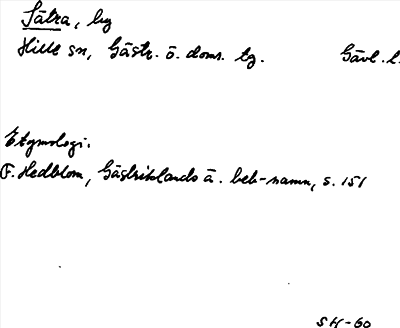 Sätra, by
Hille sn, Gästr. ö. doms. tg. Gävl. l.
Etymologi.
F. Hedblom, Gästriklands ä. beb-namn, s. 151
SH-60